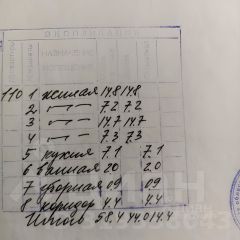 НАЗНАЧЕНИЕ
110 1 жилая 14.8 14.8
2 —"— 7.2 7.2
3 —"— 14.7 14.7
4 —"— 7.3 7.3
5 кухня 7.1 7.1
6 ванная 2.0 2.0
7 уборная 0.9 0.9
8 коридор 4.4 4.4
Итого 58.4 44.0 14.4